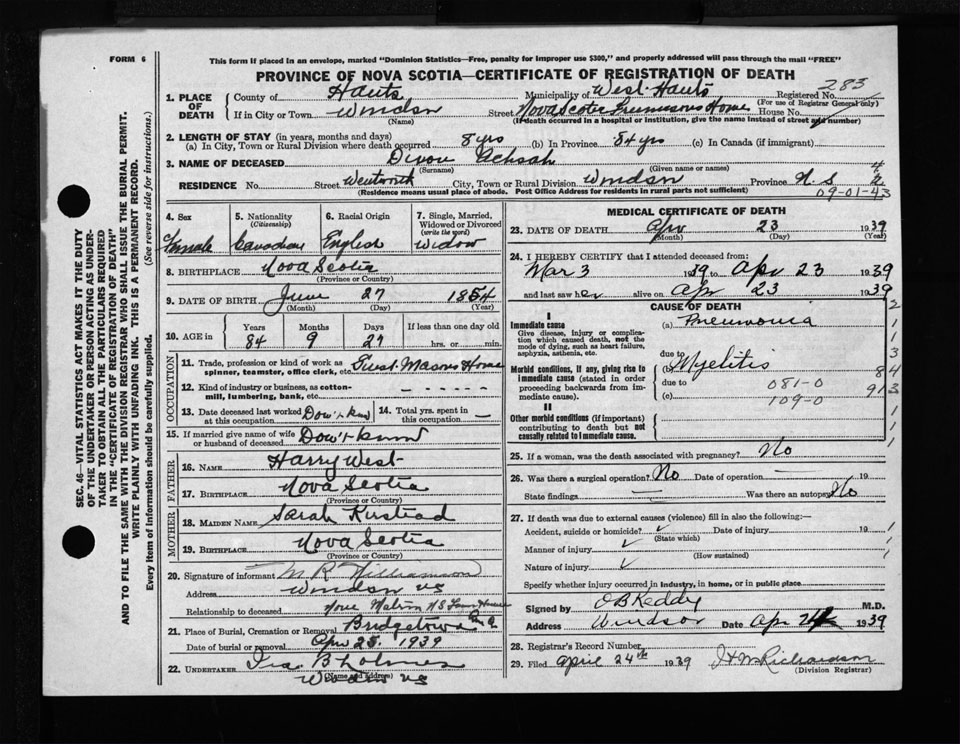 FORM 6
This form if placed in an envelope, marked "Dominion Statistics—Free, penalty for improper use $300," and properly addressed will pass through the mail "FREE"
PROVINCE OF NOVA SCOTIA—CERTIFICATE OF REGISTRATION OF DEATH
283
1. PLACE OF DEATH County of Hants Municipality of West Hants Registered No.
(For use of Registrar General only)
If in City or Town Windsor Street Nova Scotia Freemasons Home House No.
(Name) (If death occurred in a hospital or institution, give the name instead of street and number)
2. LENGTH OF STAY (in years, months and days)
(a) In City, Town or Rural Division where death occurred 8 yrs (b) In Province 84 yrs (c) In Canada (if immigrant)
3. NAME OF DECEASED Dixon Achsah
(Surname) (Given name or names)
RESIDENCE No. Street Wentworth City, Town or Rural Division Windsor Province N.S
(Residence means usual place of abode. Post Office Address for residents in rural parts not sufficient)
09-01-43
SEC. 46—VITAL STATISTICS ACT MAKES IT THE DUTY
OF THE UNDERTAKER OR PERSON ACTING AS UNDER-
TAKER TO OBTAIN ALL THE PARTICULARS REQUIRED
IN THE "CERTIFICATE OF REGISTRATION OF DEATH"
AND TO FILE THE SAME WITH THE DIVISION REGISTRAR WHO SHALL ISSUE THE BURIAL PERMIT.
WRITE PLAINLY WITH UNFADING INK. THIS IS A PERMANENT RECORD.
Every item of information should be carefully supplied. (See reverse side for instructions.)
4. Sex 5. Nationality (Citizenship) 6. Racial Origin 7. Single, Married, Widowed or Divorced (write the word)
Female Canadian English Widow
8. BIRTHPLACE Nova Scotia
(Province or Country)
9. DATE OF BIRTH June 27 1854
(Month) (Day) (Year)
10. AGE in Years Months Days If less than one day old
84 9 27 hrs. or min.
OCCUPATION
11. Trade, profession or kind of work as Guest. Masons Home
spinner, teamster, office clerk, etc.
12. Kind of industry or business, as cotton-
mill, lumbering, bank, etc.
13. Date deceased last worked at this occupation Don't know 14. Total yrs. spent in this occupation —
15. If married give name of wife or husband of deceased Don't know
FATHER
16. NAME Harry West
17. BIRTHPLACE Nova Scotia
(Province or Country)
MOTHER
18. MAIDEN NAME Sarah
19. BIRTHPLACE Nova Scotia
(Province or Country)
20. Signature of informant M R Williamson
Address Windsor NS
Relationship to deceased
21. Place of Burial, Cremation or Removal Bridgetown
Date of burial or removal Apr 25. 1939
22. UNDERTAKER
(Name and address)
Windsor NS
MEDICAL CERTIFICATE OF DEATH
23. DATE OF DEATH Apr 23 1939
(Month) (Day) (Year)
24. I HEREBY CERTIFY that I attended deceased from:
Mar 3 1939 to Apr 23 1939
and last saw her alive on Apr 23 1939
CAUSE OF DEATH
I
Immediate cause (a) Pneumonia
Give disease, injury or complica-
tion which caused death, not the
mode of dying, such as heart failure,
asphyxia, asthenia, etc.
due to
Morbid conditions, if any, giving rise to (b) Myelitis
immediate cause (stated in order due to
proceeding backwards from im- (c)
mediate cause).
081-0
109-0
II
Other morbid conditions (if important)
contributing to death but not
causally related to immediate cause.
25. If a woman, was the death associated with pregnancy? No
26. Was there a surgical operation? No Date of operation — 19
State findings — Was there an autopsy No
27. If death was due to external causes (violence) fill in also the following:—
Accident, suicide or homicide? Date of injury 19
(State which)
Manner of injury
(How sustained)
Nature of injury
Specify whether injury occurred in industry, in home, or in public place
Signed by O B Keddy M.D.
Address Windsor Date Apr 24 1939
28. Registrar's Record Number
29. Filed April 24th 1939 Richardson
(Division Registrar)